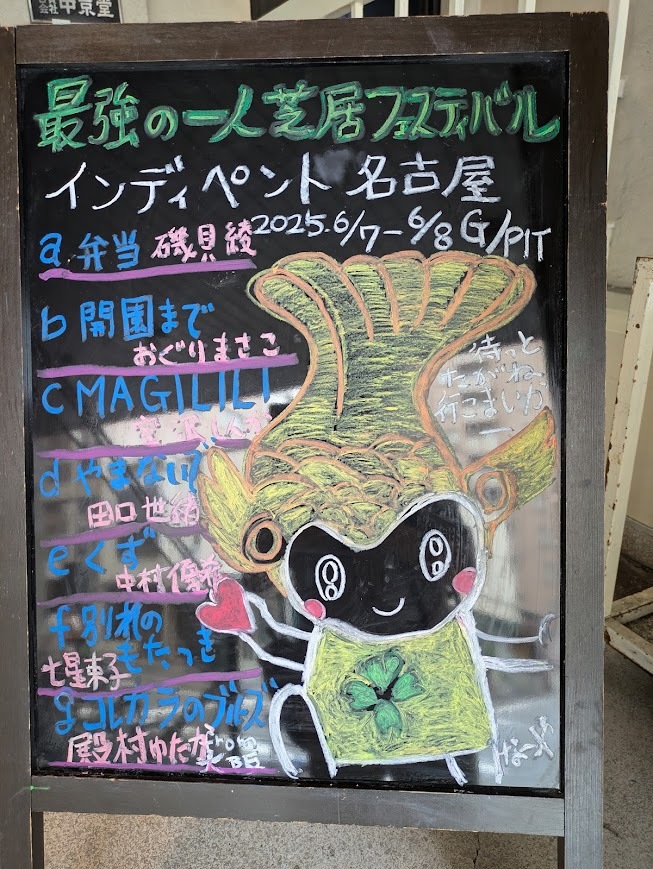 中京堂
最強の一人芝居フェスティバル
インディペンデント 名古屋
2025.6/7-6/8 G/PIT
a 弁当 磯貝綾
b 開園まで
おぐりまさこ
c MAGILILI
d やまないで
田口
e くず
中村
f 別れの
もたつき
七星東子
g コレカラのブルーズ
殿村ゆたか
from
待っと
たがね
行こまいか
ー
なごや